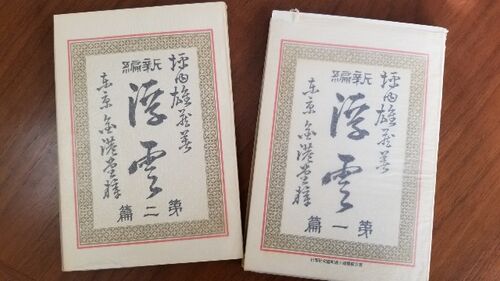 坪内雄蔵著
新編
浮雲
第二篇
東京 金港堂梓
坪内雄蔵著
新編
浮雲
第一篇
東京 金港堂梓